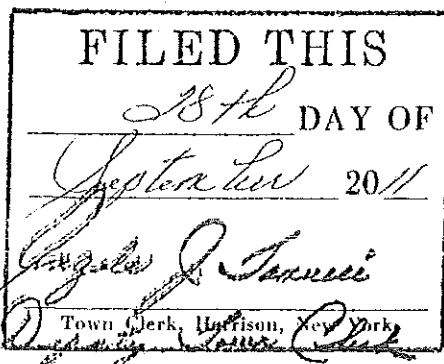 FILED THIS
28th DAY OF
September 2011
Angela J.
Town Clerk, Harrison, New York
Deputy Town Clerk